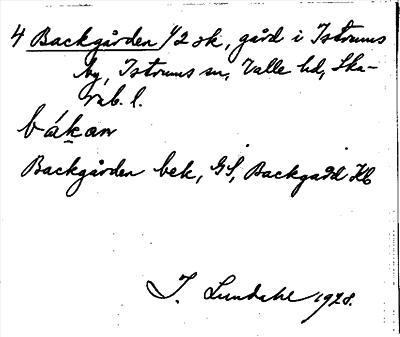 4 Backgården 1/2 sk, gård i Istrums
by, Istrums sn, Valle hd, Ska-
rab. l.
bákan
Backgården bek, GS, Backgadd Kb
I. Lundahl 1928.